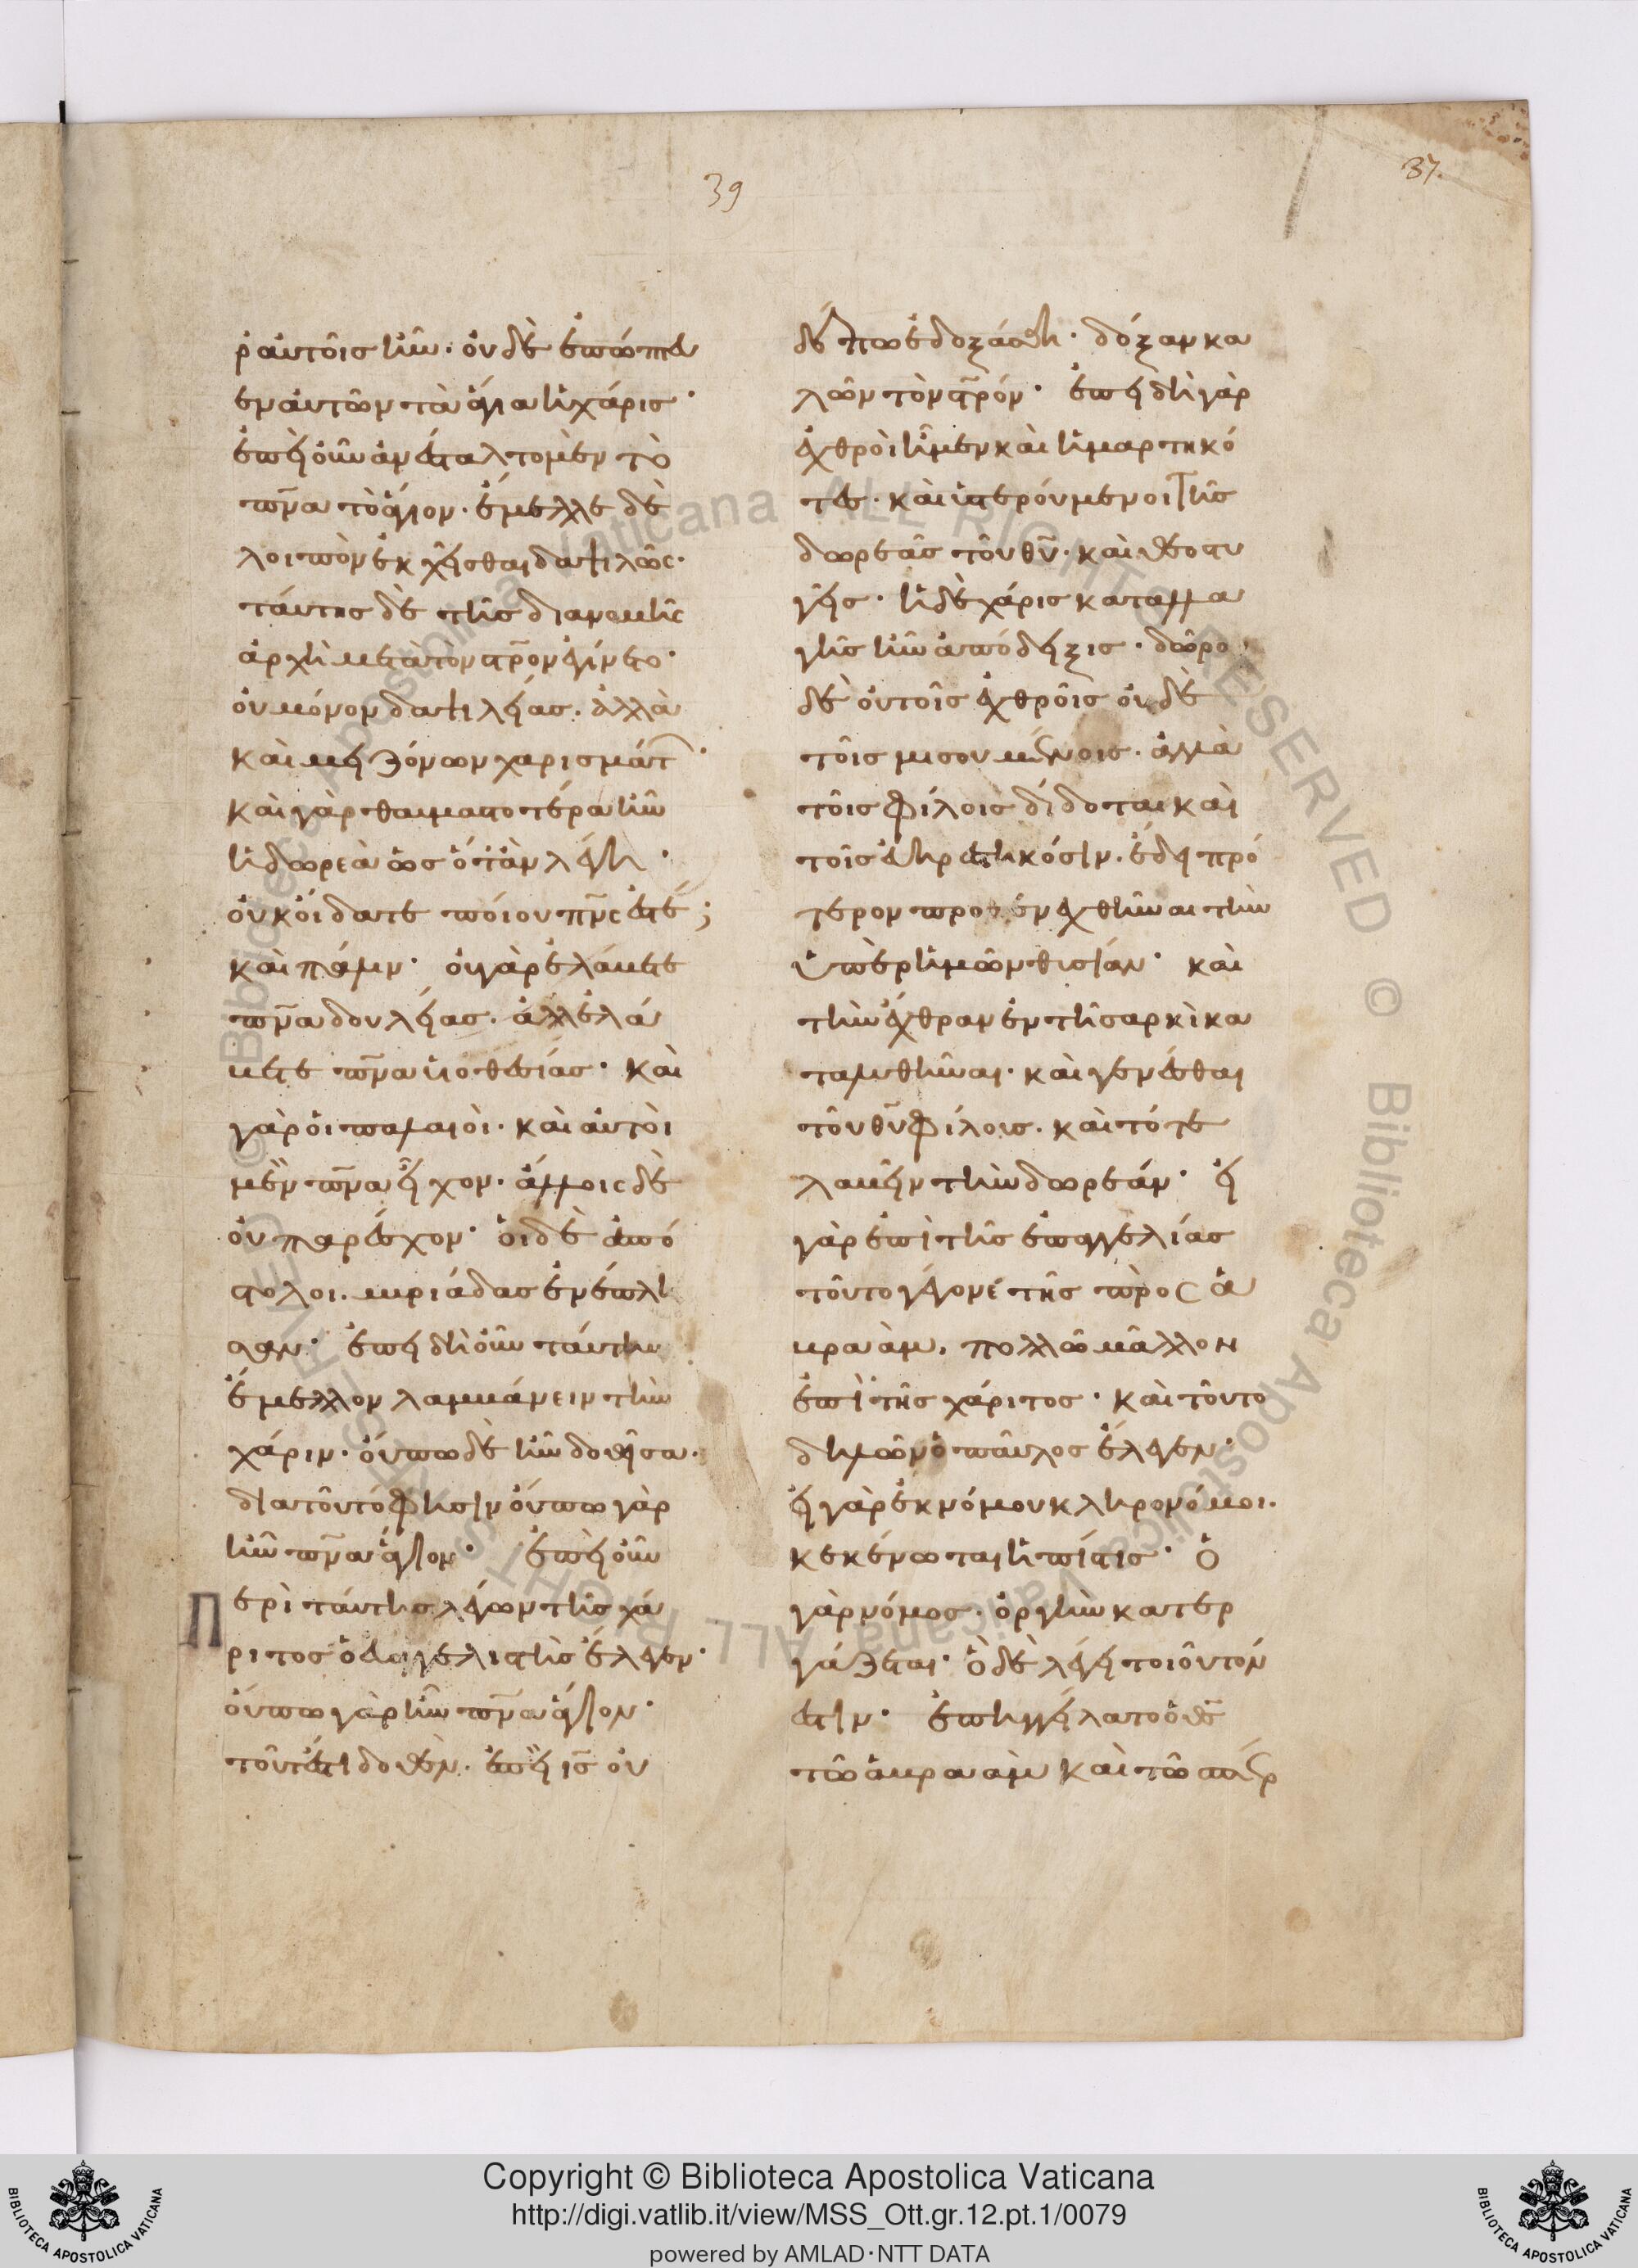 ρ αὐτοῖς ἦν. οὐδὲ ἐπώπτευ
εν αὐτῶν τὰ ἅγια ἡ χάρις·
ἐπεὶ οὖν ἀνέσταλτο μὲν τὸ
πν̅α τὸ ἅγιον. ἔμελλε δὲ
λοιπὸν ἐκχεῖσθαι δαψιλῶς.
ταύτης δὲ τῆς διανομῆς
ἀρχὴ μετὰ τὸν στ̅ρον ἐγίνετο·
οὐ μόνον δαψιλείας. ἀλλὰ
καὶ μειζόνων χαρισμάτ·
καὶ γὰρ θαυμαστοτέρα ἦν
ἡ δωρεὰ ὡς ὅταν λέγη·
οὐκ οἴδατε ποίου πν̅ς ἐστέ;
καὶ πάλιν· οὐ γὰρ ἐλάβετε
πν̅α δουλείας. ἀλλ ἐλά
βετε πν̅α υἱοθεσίας· καὶ
γὰρ οἱ παλαιοὶ. καὶ αὐτοὶ
μὲν πν̅α εἶχον. ἄλλοις δὲ
οὐ παρέσχον· οἱ δὲ ἀπό
στολοι. μυριάδας ἐνέπλη
σαν· ἐπειδὴ οὖν ταύτην
ἔμελλον λαμβάνειν τὴν
χάριν. οὔπω δὲ ἦν δοθεῖσα.
διατοῦτό φησιν οὔπω γὰρ
ἦν πν̅α ἅγιον· ἐπεὶ οὖν
Περὶ ταύτης λέγων τῆς χά
ριτος ὁ εὐαγγελιστὴς ἔλεγεν·
οὔπω γὰρ ἦν πν̅α ἅγιον·
τουτέστι δοθέν. ἐπεὶ ι̅ς οὐ
δέπω ἐδοξάσθη· δόξαν κα
λῶν τὸν στ̅ρόν· ἐπειδὴ γὰρ
ἐχθροὶ ἦμεν καὶ ἡμαρτηκό
τες. καὶ ὑστερούμενοι τῆς
δωρεᾶς τοῦ θ̅υ. καὶ θεοστυ
γεῖς· ἡ δὲ χάρις καταλλα
γῆς ἦν ἀπόδειξις. δῶρο
δὲ οὐ τοῖς ἐχθροῖς οὐδὲ
τοῖς μισουμένοις. ἀλλὰ
τοῖς φίλοις δίδοται καὶ
τοῖς εὐηρεστηκόσιν. ἔδει πρό
τερον προσενεχθῆναι τὴν
ὑπὲρ ἡμῶν θυσίαν· καὶ
τὴν ἔχθραν ἐν τῆ σαρκὶ κα
ταλυθῆναι. καὶ γενέσθαι
τοῦ θ̅υ φίλους. καὶ τότε
λαβεῖν τὴν δωρεάν· εἰ
γὰρ ἐπὶ τῆς ἐπαγγελίας
τοῦτο γέγονε τῆς πρὸς ἀ
βραάμ. πολλῶ μᾶλλον
ἐπὶ τῆς χάριτος· καὶ τοῦτο
δηλῶν ὁ παῦλος ἔλεγεν·
εἰ γὰρ ἐκ νόμου κληρονόμοι.
κεκένωται ἡ πίστις· ὁ
γὰρ νόμος. ὀργὴν κατερ
γάζεται· ὃ δὲ λέγει τοιοῦτόν
ἐστιν· ἐπηγγείλατο ὁ θ̅ς
τῶ ἀβραὰμ καὶ τῶ σπέρ
39
37.
Copyright © Biblioteca Apostolica Vaticana
http://digi.vatlib.it/view/MSS_Ott.gr.12.pt.1/0079
powered by AMLAD·NTT DATA
BIBLIOTECA APOSTOLICA VATICANA
BIBLIOTECA APOSTOLICA VATICANA
© Biblioteca Apostolica Vaticana ALL RIGHTS RESERVED
© Biblioteca Apostolica Vaticana ALL RIGHTS RESERVED